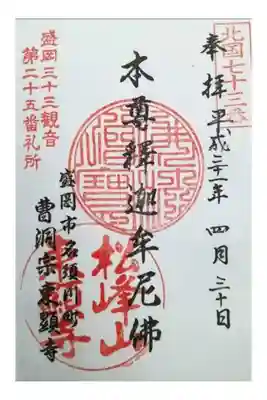 北国七十三番
奉拝 平成三十一年 四月 三十日
本尊釋迦牟尼佛
盛岡市名須川町
曹洞宗東顕寺
盛岡三十三観音
第二十五番礼所
松峰山
東顕寺